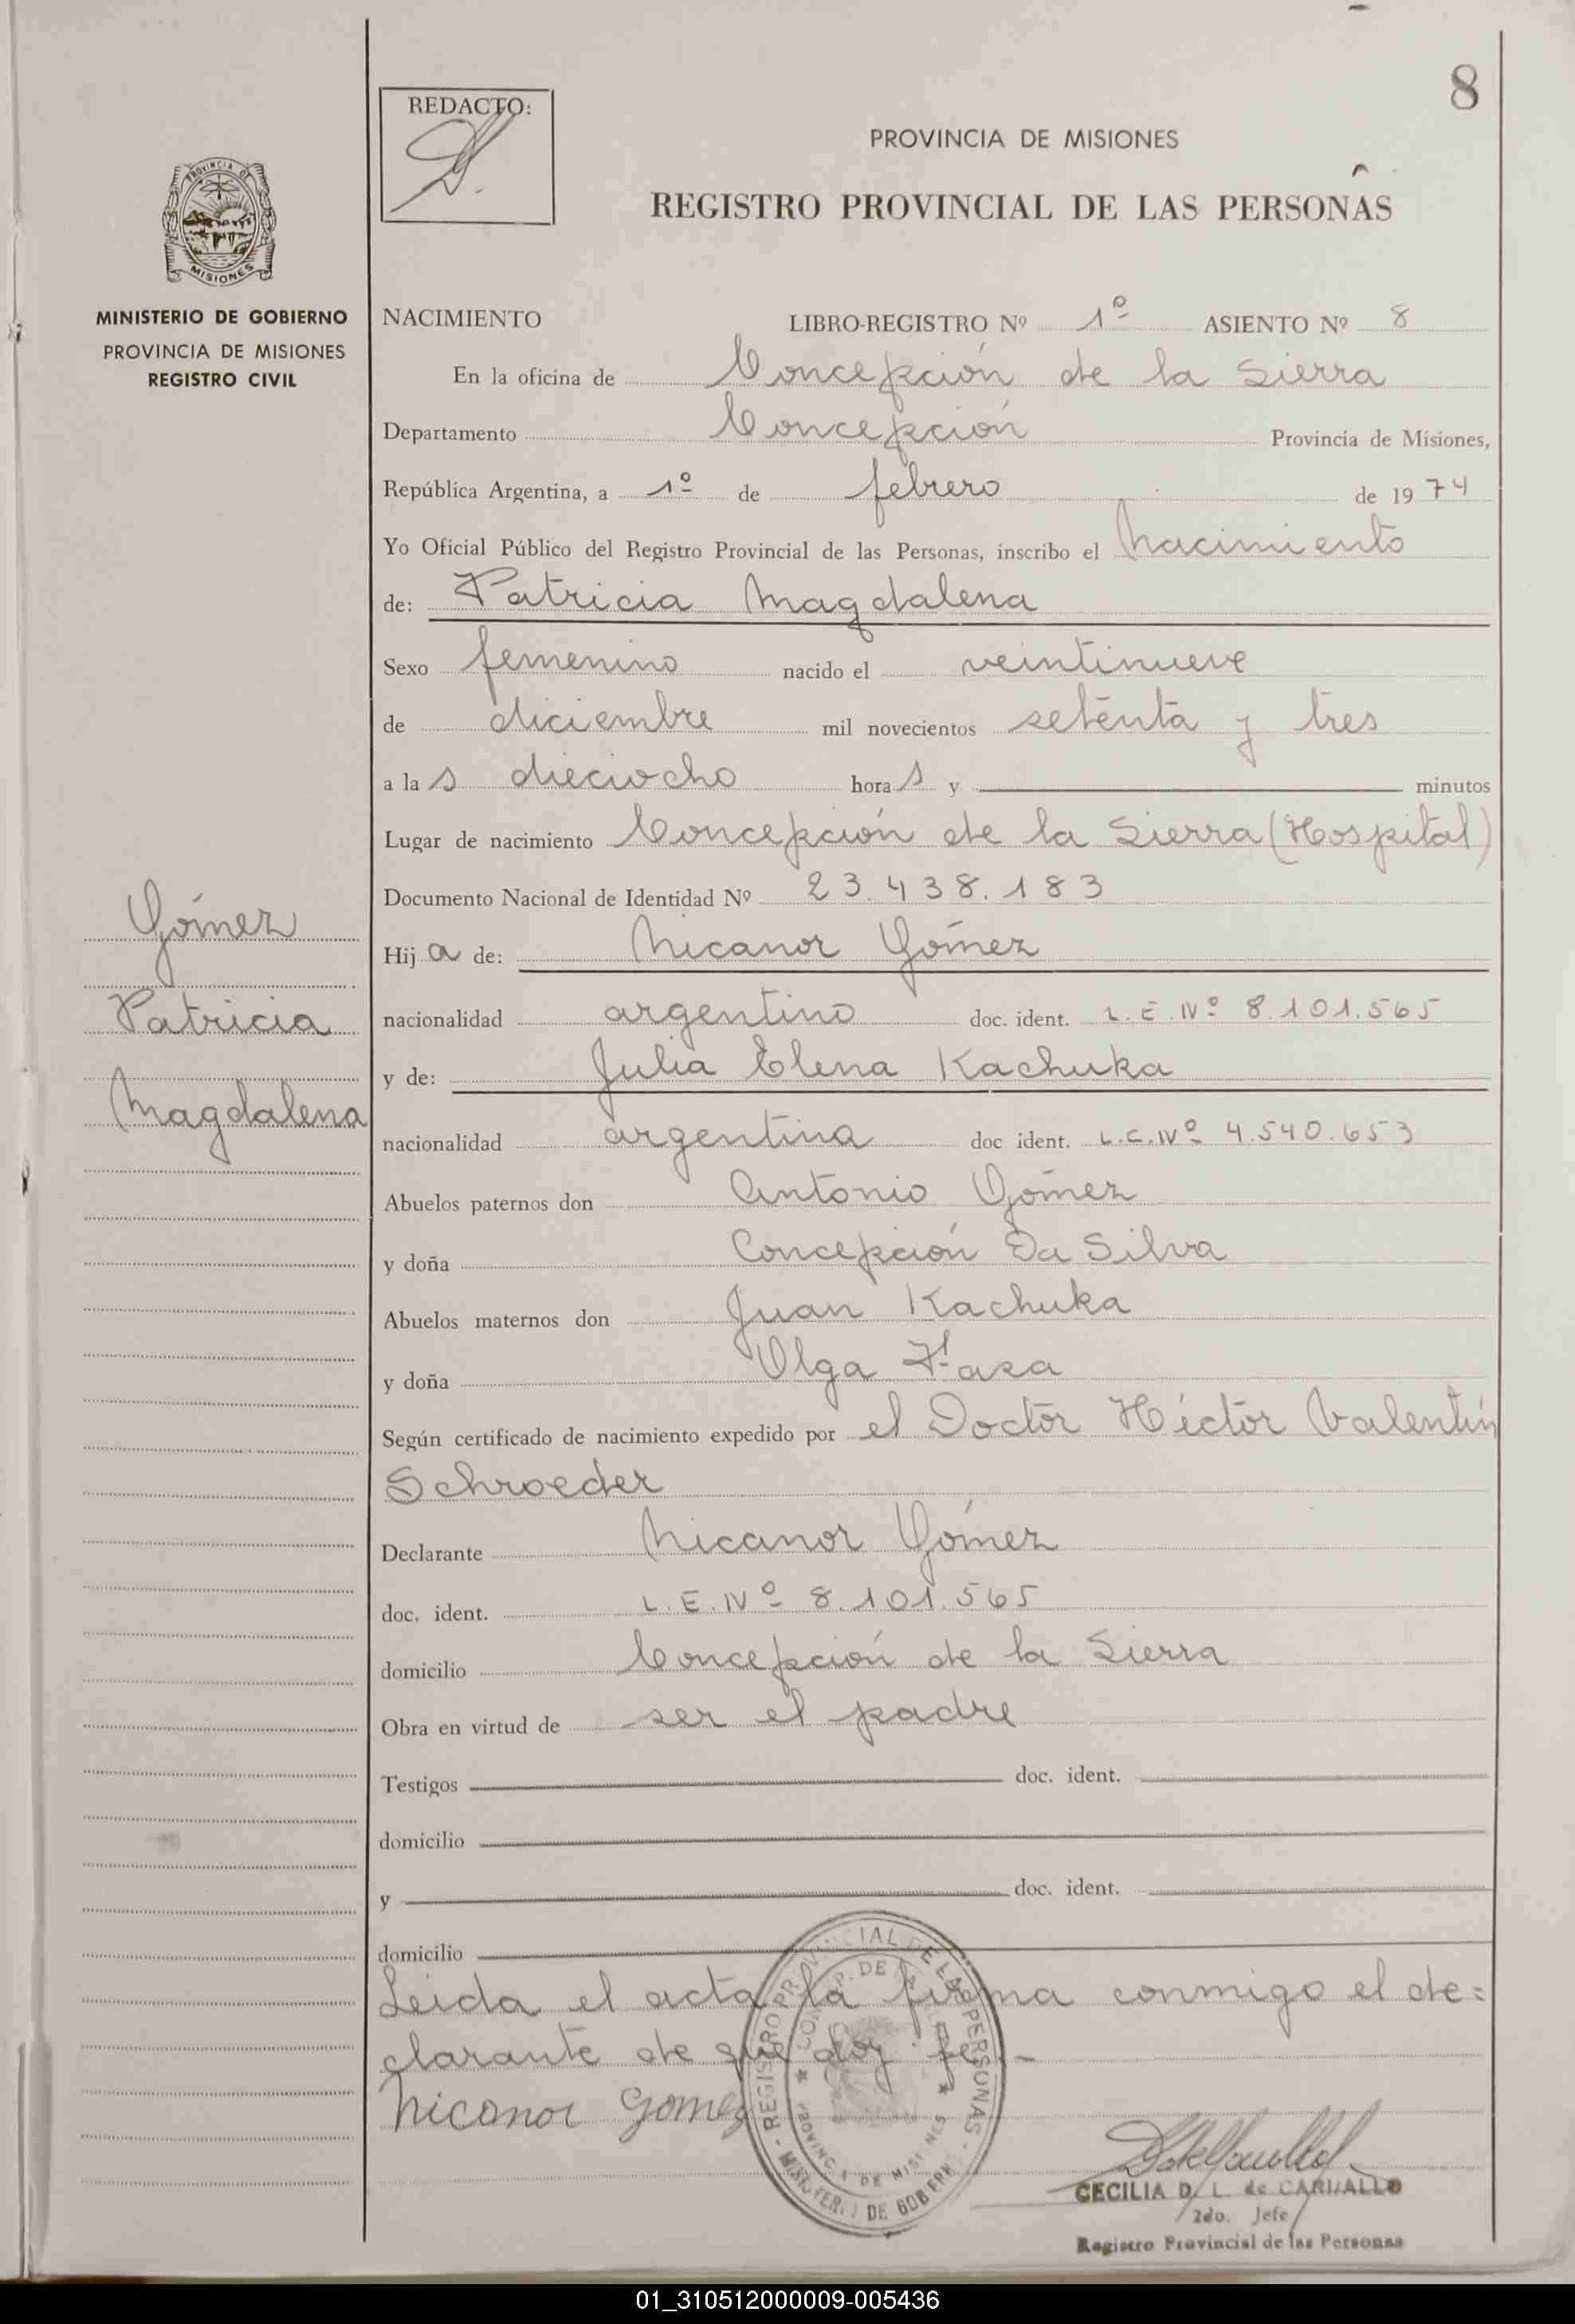 8
REDACTO:
PROVINCIA DE MISIONES
REGISTRO PROVINCIAL DE LAS PERSONAS
PROVINCIA DE
MISIONES
MINISTERIO DE GOBIERNO
PROVINCIA DE MISIONES
REGISTRO CIVIL
NACIMIENTO LIBRO-REGISTRO Nº 1º ASIENTO Nº 8
En la oficina de Concepción de la Sierra
Departamento Concepción Provincia de Misiones,
República Argentina, a 1º de febrero de 1974
Yo Oficial Público del Registro Provincial de las Personas, inscribo el nacimiento
de: Patricia Magdalena
Sexo femenino nacido el veintinueve
de diciembre mil novecientos setenta y tres
a las dieciocho horas y minutos
Lugar de nacimiento Concepción de la Sierra (Hospital)
Documento Nacional de Identidad Nº 23.438.183
Gómez
Patricia
Magdalena
Hija de: Nicanor Gómez
nacionalidad argentino doc. ident. L.E.Nº 8.101.565
y de: Julia Elena Kachuka
nacionalidad argentina doc ident. L.C.Nº 4.540.653
Abuelos paternos don Antonio Gómez
y doña Concepción Da Silva
Abuelos maternos don Juan Kachuka
y doña Olga
Según certificado de nacimiento expedido por el Doctor Héctor Valentín
Schroeder
Declarante Nicanor Gómez
doc. ident. L.E.Nº 8.101.565
domicilio Concepción de la Sierra
Obra en virtud de ser el padre
Testigos doc. ident.
domicilio
y doc. ident.
domicilio
Leida el acta la firma conmigo el de=
clarante de que doy fe.-
Nicanor Gomez
REGISTRO PROVINCIAL DE LAS PERSONAS
PROVINCIA DE MISIONES
MINISTERIO DE GOBIERNO
CECILIA D. L. de CARVALLO
2do. Jefe
Registro Provincial de las Personas
01_310512000009-005436